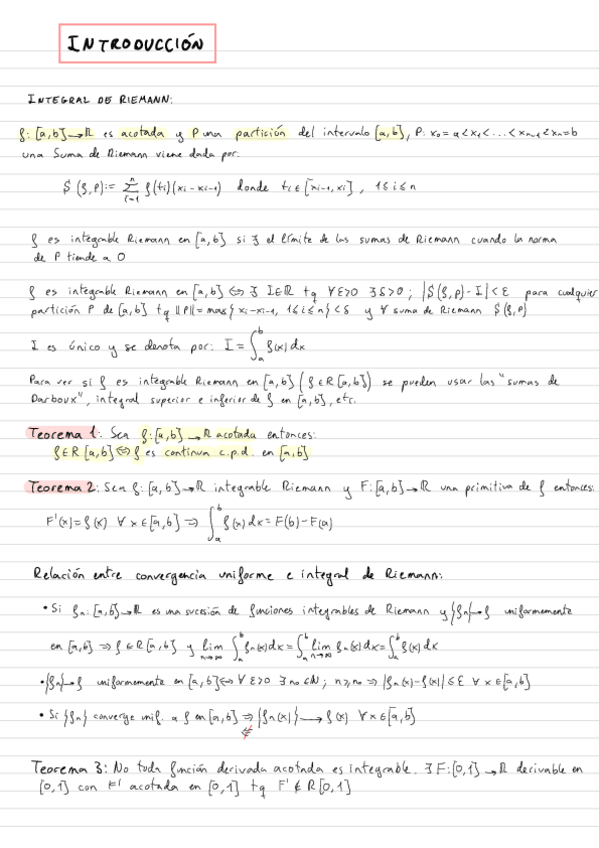 INTRODUCCIÓN
INTEGRAL DE RIEMANN:
f: [a,b]→ℝ es acotada y P una partición del intervalo [a,b], P: x₀=a<x₁<...<xₙ₋₁<xₙ=b
una Suma de Riemann viene dada por:
S(f,P):= ∑ⁿᵢ₌₁ f(tᵢ)(xᵢ-xᵢ₋₁) donde tᵢ∈[xᵢ₋₁,xᵢ], 1≤i≤n
f es integrable Riemann en [a,b] si ∃ el límite de las sumas de Riemann cuando la norma
de P tiende a 0
f es integrable Riemann en [a,b] ⇔ ∃ I∈ℝ tq ∀ε>0 ∃δ>0; |S(f,P)-I|<ε para cualquier
partición P de [a,b] tq ||P||=max{xᵢ-xᵢ₋₁, 1≤i≤n}<δ y ∀ suma de Riemann S(f,P)
I es único y se denota por: I=∫ₐᵇ f(x)dx
Para ver si f es integrable Riemann en [a,b] (f∈R[a,b]) se pueden usar las "sumas de
Darboux", integral superior e inferior de f en [a,b], etc.
Teorema 1: Sea f:[a,b]→ℝ acotada entonces:
f∈R[a,b]⇔f es continua c.p.d. en [a,b]
Teorema 2: Sea f:[a,b]→ℝ integrable Riemann y F:[a,b]→ℝ una primitiva de f entonces:
F'(x)=f(x) ∀x∈[a,b] ⇒ ∫ₐᵇ f(x)dx=F(b)-F(a)
Relación entre convergencia uniforme e integral de Riemann:
• Si fₙ:[a,b]→ℝ es una sucesión de funciones integrables de Riemann y {fₙ}→f uniformemente
en [a,b] ⇒ f∈R[a,b] y lim n→∞ ∫ₐᵇ fₙ(x)dx=∫ₐᵇ lim n→∞ fₙ(x)dx=∫ₐᵇ f(x)dx
• {fₙ}→f uniformemente en [a,b]⇔∀ε>0 ∃n₀∈ℕ; n≥n₀ ⇒ |fₙ(x)-f(x)|≤ε ∀x∈[a,b]
• Si {fₙ} converge unif. a f en [a,b] ⇒ {fₙ(x)}→f(x) ∀x∈[a,b]
⇍
Teorema 3: No toda función derivada acotada es integrable. ∃F:[0,1]→ℝ derivable en
[0,1] con F' acotada en [0,1] tq F'∉R[0,1]